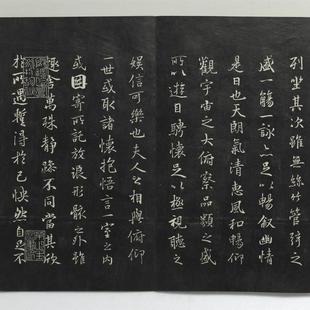 列坐其次雖無絲竹管弦之
盛一觴一詠亦足以暢叙幽情
是日也天朗氣清惠風和暢仰
觀宇宙之大俯察品類之盛
所以遊目騁懷足以極視聽之
娛信可樂也夫人之相與俯仰
一世或取諸懷抱悟言一室之內
或因寄所託放浪形骸之外雖
趣舍萬殊靜躁不同當其欣
於所遇蹔得於己怏然自足不